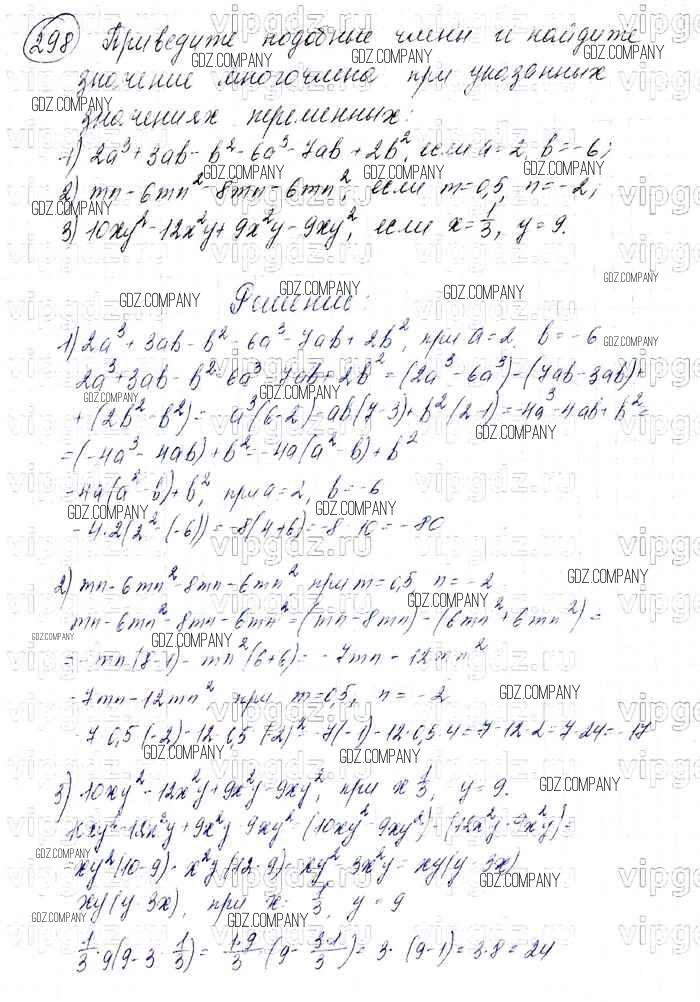 298 Приведите подобные члены и найдите
значение многочлена при указанных
значениях переменных:
1) 2a³+3ab-b²-6a³-7ab+2b², если a=2, b=-6;
2) mn-6mn²-8mn-6mn², если m=0,5, n=-2;
3) 10xy²-12x²y+9x²y-9xy², если x=1/3, y=9.
Решение:
1) 2a³+3ab-b²-6a³-7ab+2b², при a=2, b=-6
2a³+3ab-b²-6a³-7ab+2b²=(2a³-6a³)-(7ab-3ab)+
+(2b²-b²)=-a³(6-2)-ab(7-3)+b²(2-1)=-4a³-4ab+b²=
=(-4a³-4ab)+b²=-4a(a²-b)+b²
-4a(a²-b)+b², при a=2, b=-6
-4·2(2²-(-6))=-8(4+6)=-8·10=-80
2) mn-6mn²-8mn-6mn² при m=0,5, n=-2
mn-6mn²-8mn-6mn²=(mn-8mn)-(6mn²+6mn²)=
=-mn(8-1)-mn²(6+6)=-7mn-12mn²
-7mn-12mn², при m=0,5, n=-2
-7·0,5·(-2)-12·0,5·(-2)²=-7(-1)-12·0,5·4=7-12·2=7-24=-17
3) 10xy²-12x²y+9x²y-9xy², при x 1/3, y=9.
10xy²-12x²y+9x²y-9xy²=(10xy²-9xy²)-(12x²y-9x²y)=
=xy²(10-9)-x²y(12-9)=xy²-3x²y=xy(y-3x)
xy(y-3x), при x=1/3, y=9
1/3·9(9-3·1/3)=1·9/3·(9-3·1/3)=3·(9-1)=3·8=24